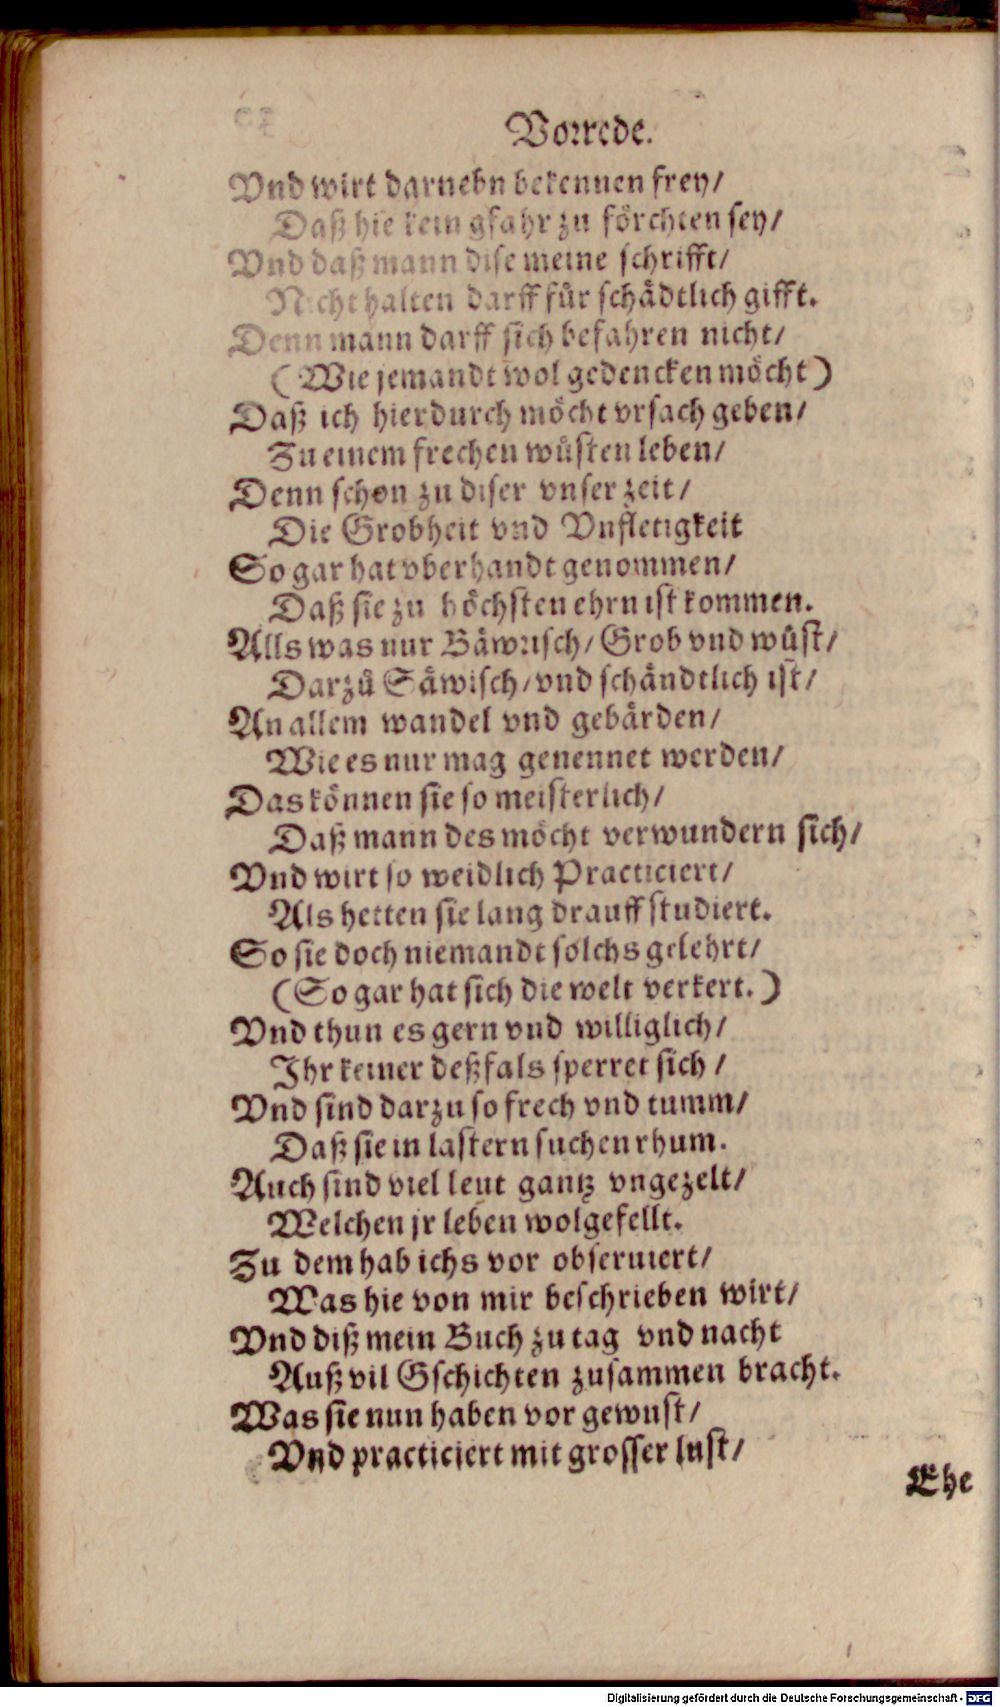 Vorrede.
Vnd wirt darnebn bekennen frey/
Daß hie kein gfahr zu förchten sey/
Vnd daß mann dise meine schrifft/
Nicht halten darff für schädtlich gifft.
Denn mann darff sich befahren nicht/
(Wie jemandt wol gedencken möcht)
Daß ich hierdurch möcht vrsach geben/
Zu einem frechen wüsten leben/
Denn schon zu diser vnser zeit/
Die Grobheit vnd Vnfletigkeit
So gar hat vberhandt genommen/
Daß sie zu höchsten ehrn ist kommen.
Alls was nur Bäwrisch/ Grob vnd wüst/
Darzů Säwisch/ vnd schändtlich ist/
An allem wandel vnd gebärden/
Wie es nur mag genennet werden/
Das können sie so meisterlich/
Daß mann des möcht verwundern sich/
Vnd wirt so weidlich Practiciert/
Als hetten sie lang drauff studiert.
So sie doch niemandt solchs gelehrt/
(So gar hat sich die welt verkert.)
Vnd thun es gern vnd williglich/
Ihr keiner deßfals sperret sich/
Vnd sind darzu so frech vnd tumm/
Daß sie in lastern suchen rhum.
Auch sind viel leut gantz vngezelt/
Welchen jr leben wolgefellt.
Zu dem hab ichs vor obseruiert/
Was hie von mir beschrieben wirt/
Vnd diß mein Buch zu tag vnd nacht
Auß vil Gschichten zusammen bracht.
Was sie nun haben vor gewust/
Vnd practiciert mit grosser lust/
Ehe
Digitalisierung gefördert durch die Deutsche Forschungsgemeinschaft - DFG